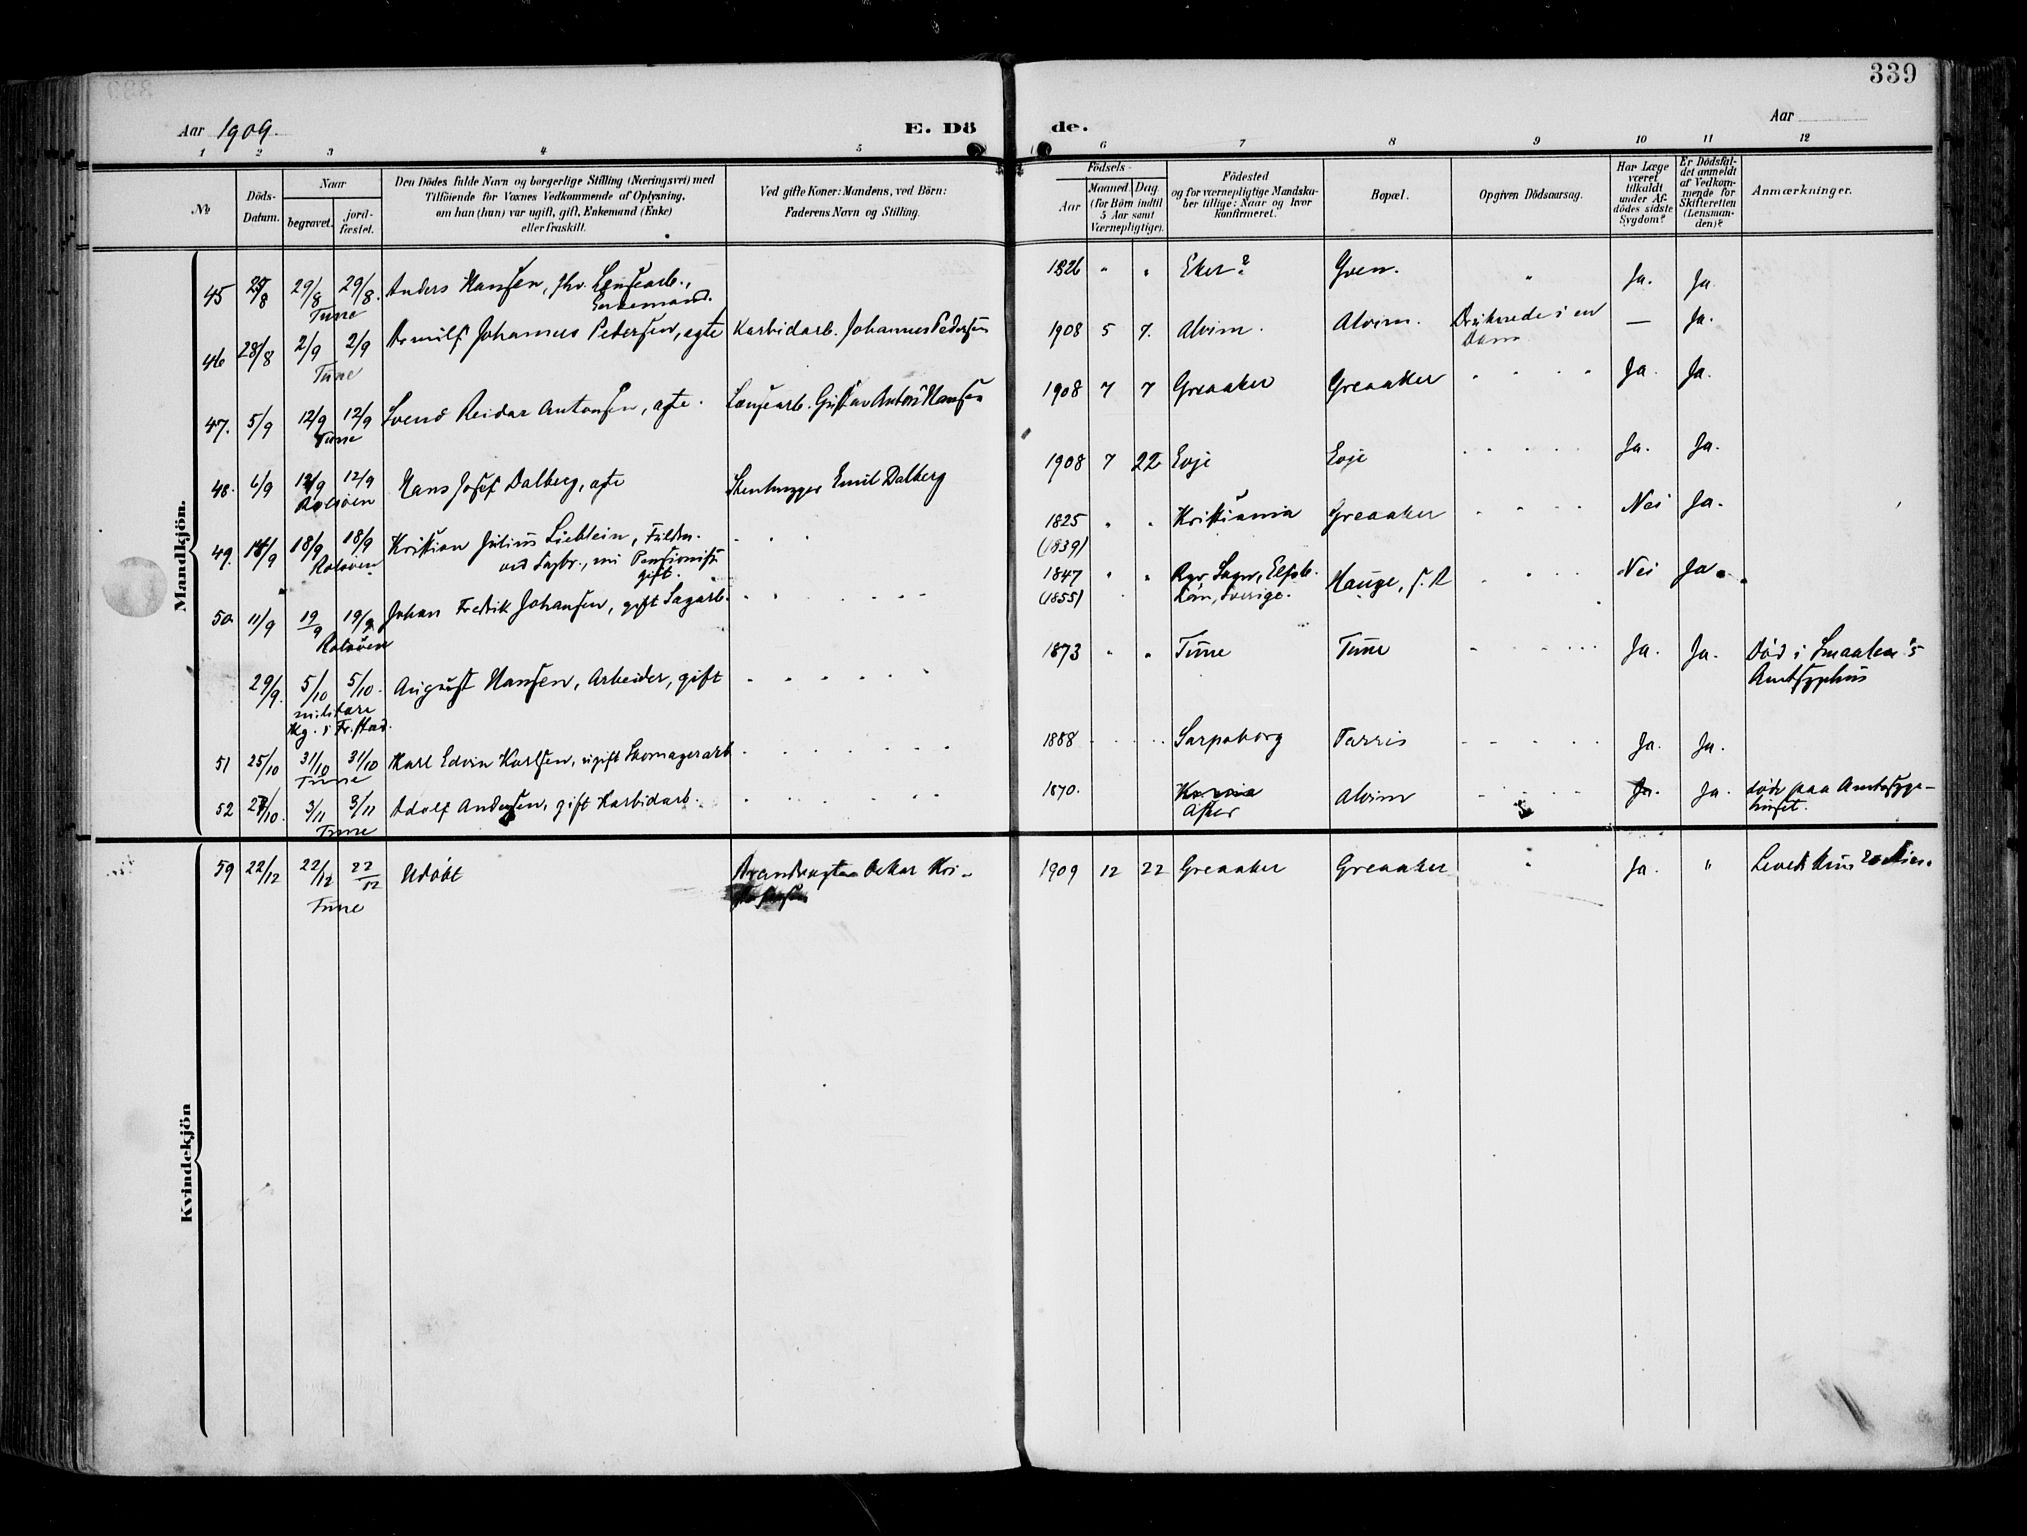 339
Aar 1909.
E. Dö de.
Aar
1 2 3 4 5 6 7 8 9 10 11 12
No
Döds-
Datum.
Naar
begravet.
jord-
fæstet.
Den Dödes fulde Navn og borgerlige Stilling (Næringsvei) med
Tilföiende for Voxnes Vedkommende af Oplysning,
om han (hun) var ugift, gift, Enkemand (Enke)
eller fraskilt.
Ved gifte Koner: Mandens, ved Börn:
Faderens Navn og Stilling.
Födsels-
Aar
Maaned. Dag.
(for Börn indtil
5 Aar samt
Værnepligtige).
Födested
og for værnepligtige Mandska-
ber tillige: Naar og hvor
konfirmeret.
Bopæl.
Opgiven Dödsaarsag.
Har Læge
været
tilkaldt
under Af-
dödes sidste
Sygdom?
Er Dödsfal-
det anmeldt
af Vedkom-
mende for
Skifteretten
(Lensman-
den)?
Anmærkninger.
Mandkjön.
45 29/8 29/8 Anders Hansen, fhv. Lensearb., 1826 " " Eker? Yven. " Ja. Ja.
Tune Enkemand.
46 28/8 2/9 2/9 Johannes Pedersen, egte Karbidarb. Johannes Pedersen 1908 5 7. Alvim. Alvim. Druknede i en — Ja.
Tune Dam
47. 5/9 12/9 12/9 Svend Reidar Antonsen, egte. Lensearb. Gustav Anton Hansen 1908 7 7 Greaaker Greaaker " " " " Ja. Ja.
Tune
48. 6/9 12/9 12/9 Hans Josef Dalberg, egte Stenhugger Emil Dalberg 1908 7 22 Evje Evje Ja. Ja.
Rolsöen
49. 14/9 18/9 18/9 Kristian Julius Lieblein, Fuldm. 1825 " " Kristiania Greaaker Nei Ja.
Rolsöen ved Sagbr., nu Pensionist (1839)
gift.
50 11/9 19/9 19/9 Johan Fredrik Johansen, gift Sagarb. 1847 " " Sogn, Elfsb. Hauge, Nei Ja.
Rolsöen (1855) Län, Sverige.
29/9. 5/10 5/10. August Hansen, Arbeider, gift 1873 " " Tune Tune Ja. Ja. Død i Smaalen's
militære Amtssyghus
Kg. i Fr.stad.
51 25/10 31/10 31/10 Karl Edvin Karlsen, ugift Skomagerarb 1888 Sarpsborg Tarris Ja. Ja.
Tune
52 27/10. 3/11 3/11 Adolf Andersen, gift Karbidarb. 1870. Alvim Ja. Ja. døde paa Amtssyge-
Tune Asker huset.
Kvindekjön
59 22/12 22/12 22/12 Udöbt Oskar Kri- 1909 12 22 Greaaker Greaaker " Ja. " Levet kun 20 Min.
Tune